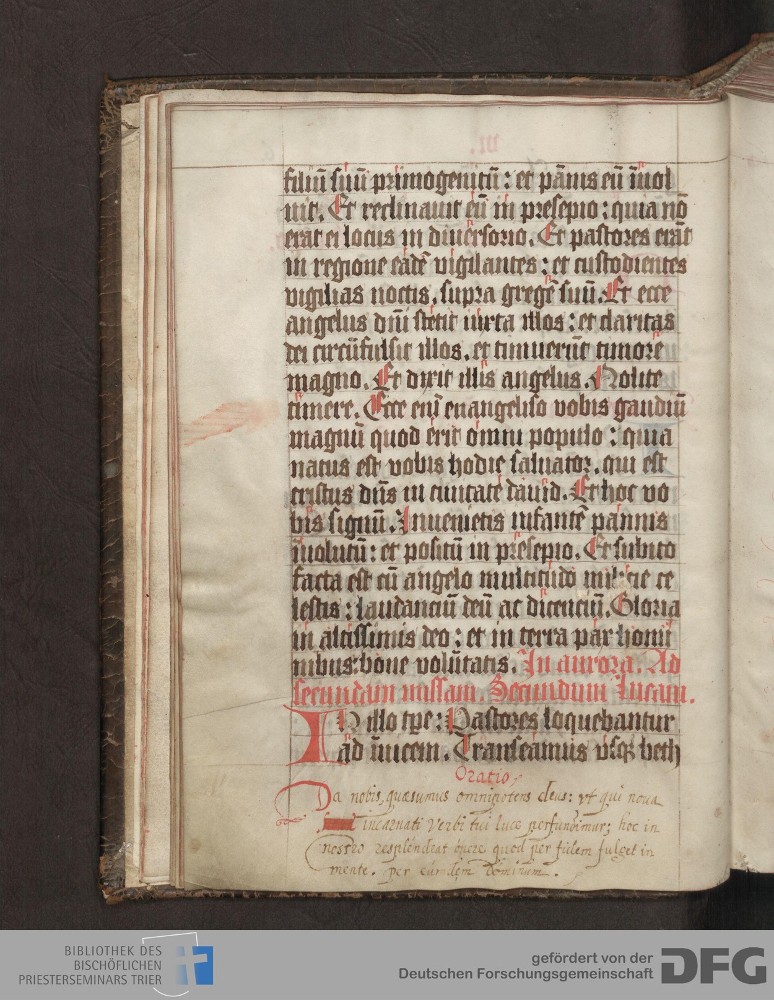 filiū suū primogenitū : et pānis eū īuol
uit. Et reclinauit eū in presepio : quia nō
erat ei locus in diuersorio. Et pastores erāt
in regione eadē vigilantes : et custodientes
vigilias noctis. supra gregē suū. Et ecce
angelus dn̄i stetit iuxta illos : et claritas
dei circūfulsit illos. et timuerūt timore
magno. Et dixit illis angelus. Nolite
timere. Ecce eni euangeliso vobis gaudiū
magnū quod erit omni populo : quia
natus est vobis hodie saluator. qui est
cristus dn̄s in ciuitate dauid. Et hoc vo
bis signū. Inuenietis infantē pannis
īuolutū : et positū in presepio. Et subito
facta est cū angelo multitudo militie ce
lestis : laudanciū deū ac dicenciū. Gloria
in altissimis deo : et in terra pax homi
nibus bone volūtatis. In aurora. Ad
secundam missam. Secundum Lucam.
IN illo tp̄e : Pastores loquebantur
ad īuicem. Transeamus vsqꝫ beth
Oratio,
Da nobis, quæsumus omnipotens deus : vt qui noua
incarnati Verbi tui luce perfundimur; hoc in
nostro resplendeat opere quod per fidem fulget in
mente. per eundem Dominum.
BIBLIOTHEK DES
BISCHÖFLICHEN
PRIESTERSEMINARS TRIER
gefördert von der
Deutschen Forschungsgemeinschaft
DFG